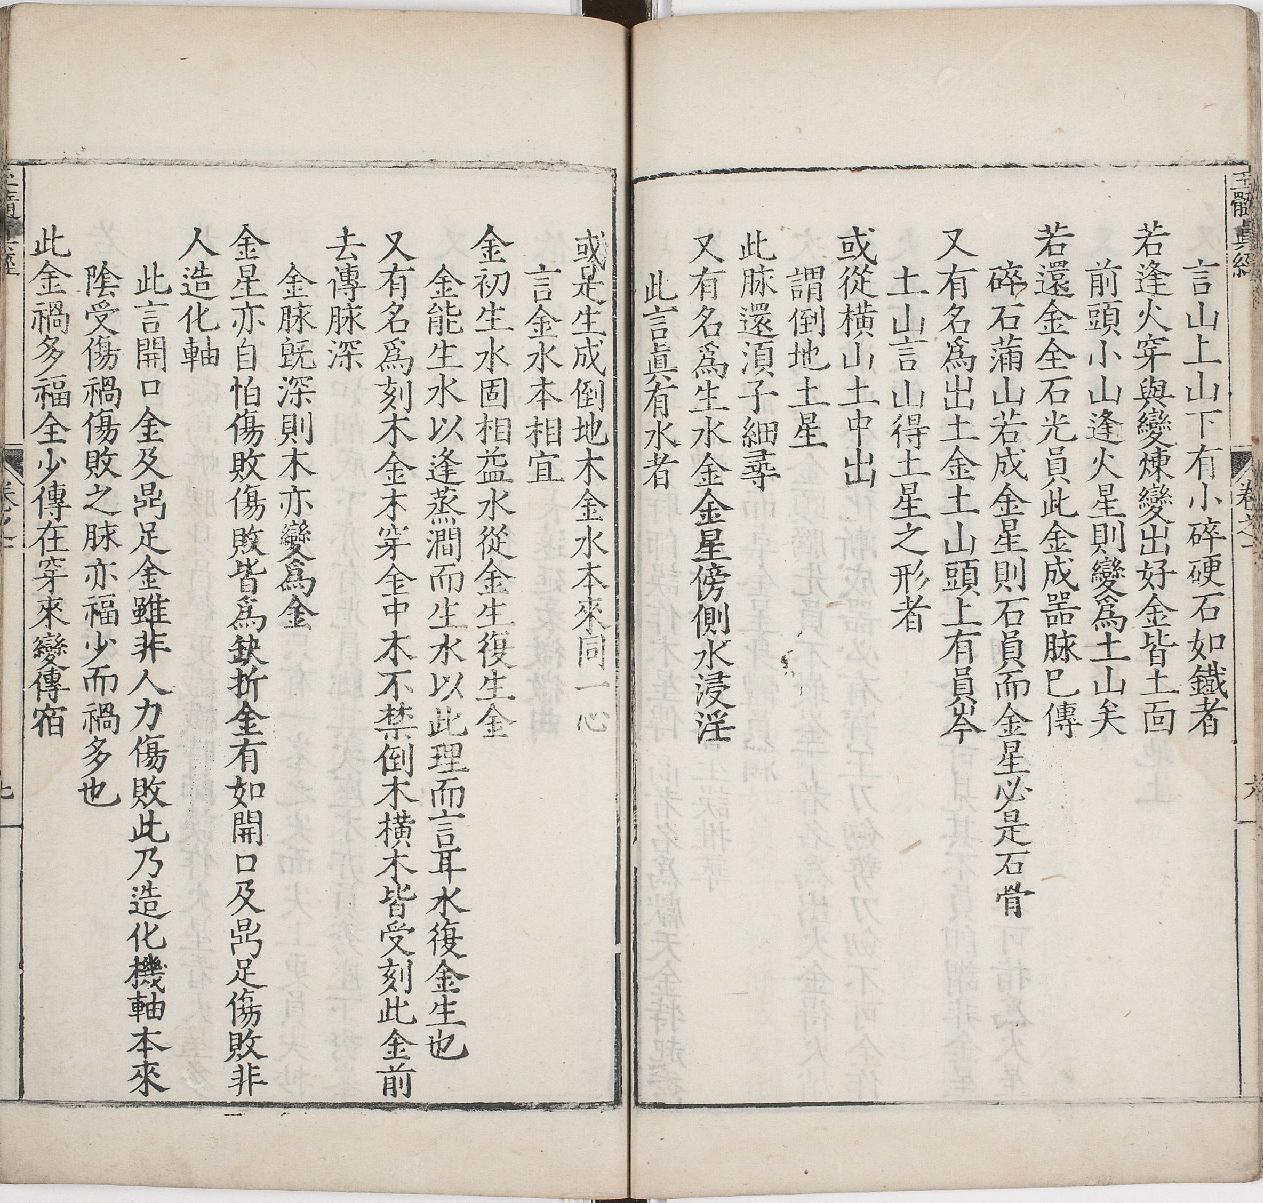 玉髓真經
卷之一
六
言山上山下有小碎硬石如鐵者
若逢火穿與變煉變出好金皆土回
前頭小山逢火星則變爲土山矣
若還金全石光員此金成噐脉巳傳
碎石蒲山若成金星則石員而金星必是石骨
又有名為出土金土山頭上有員岑
土山言山得土星之形者
或從橫山土中出
謂倒地土星
此脉還湏子細尋
又有名爲生水金金星傍側水浸淫
此言眞有水者
或是生成倒地木金水本來同一心
言金水本相宜
金初生水固相益水從金生復生金
金能生水以逢蒸澗而生水以此理而言耳水復金生也
又有名爲刻木金木穿金中木不禁倒木橫木皆受刻此金前
去傳脉深
金脉旣深則木亦變爲金
金星亦自怕傷敗傷敗皆爲缺折金有如開口及鼎足傷敗非
人造化軸
此言開口金及鼎足金雖非人力傷敗此乃造化機軸本來
陰受傷禍傷敗之脉亦福少而禍多也
此金禍多福全少傳在穿來變傳宿